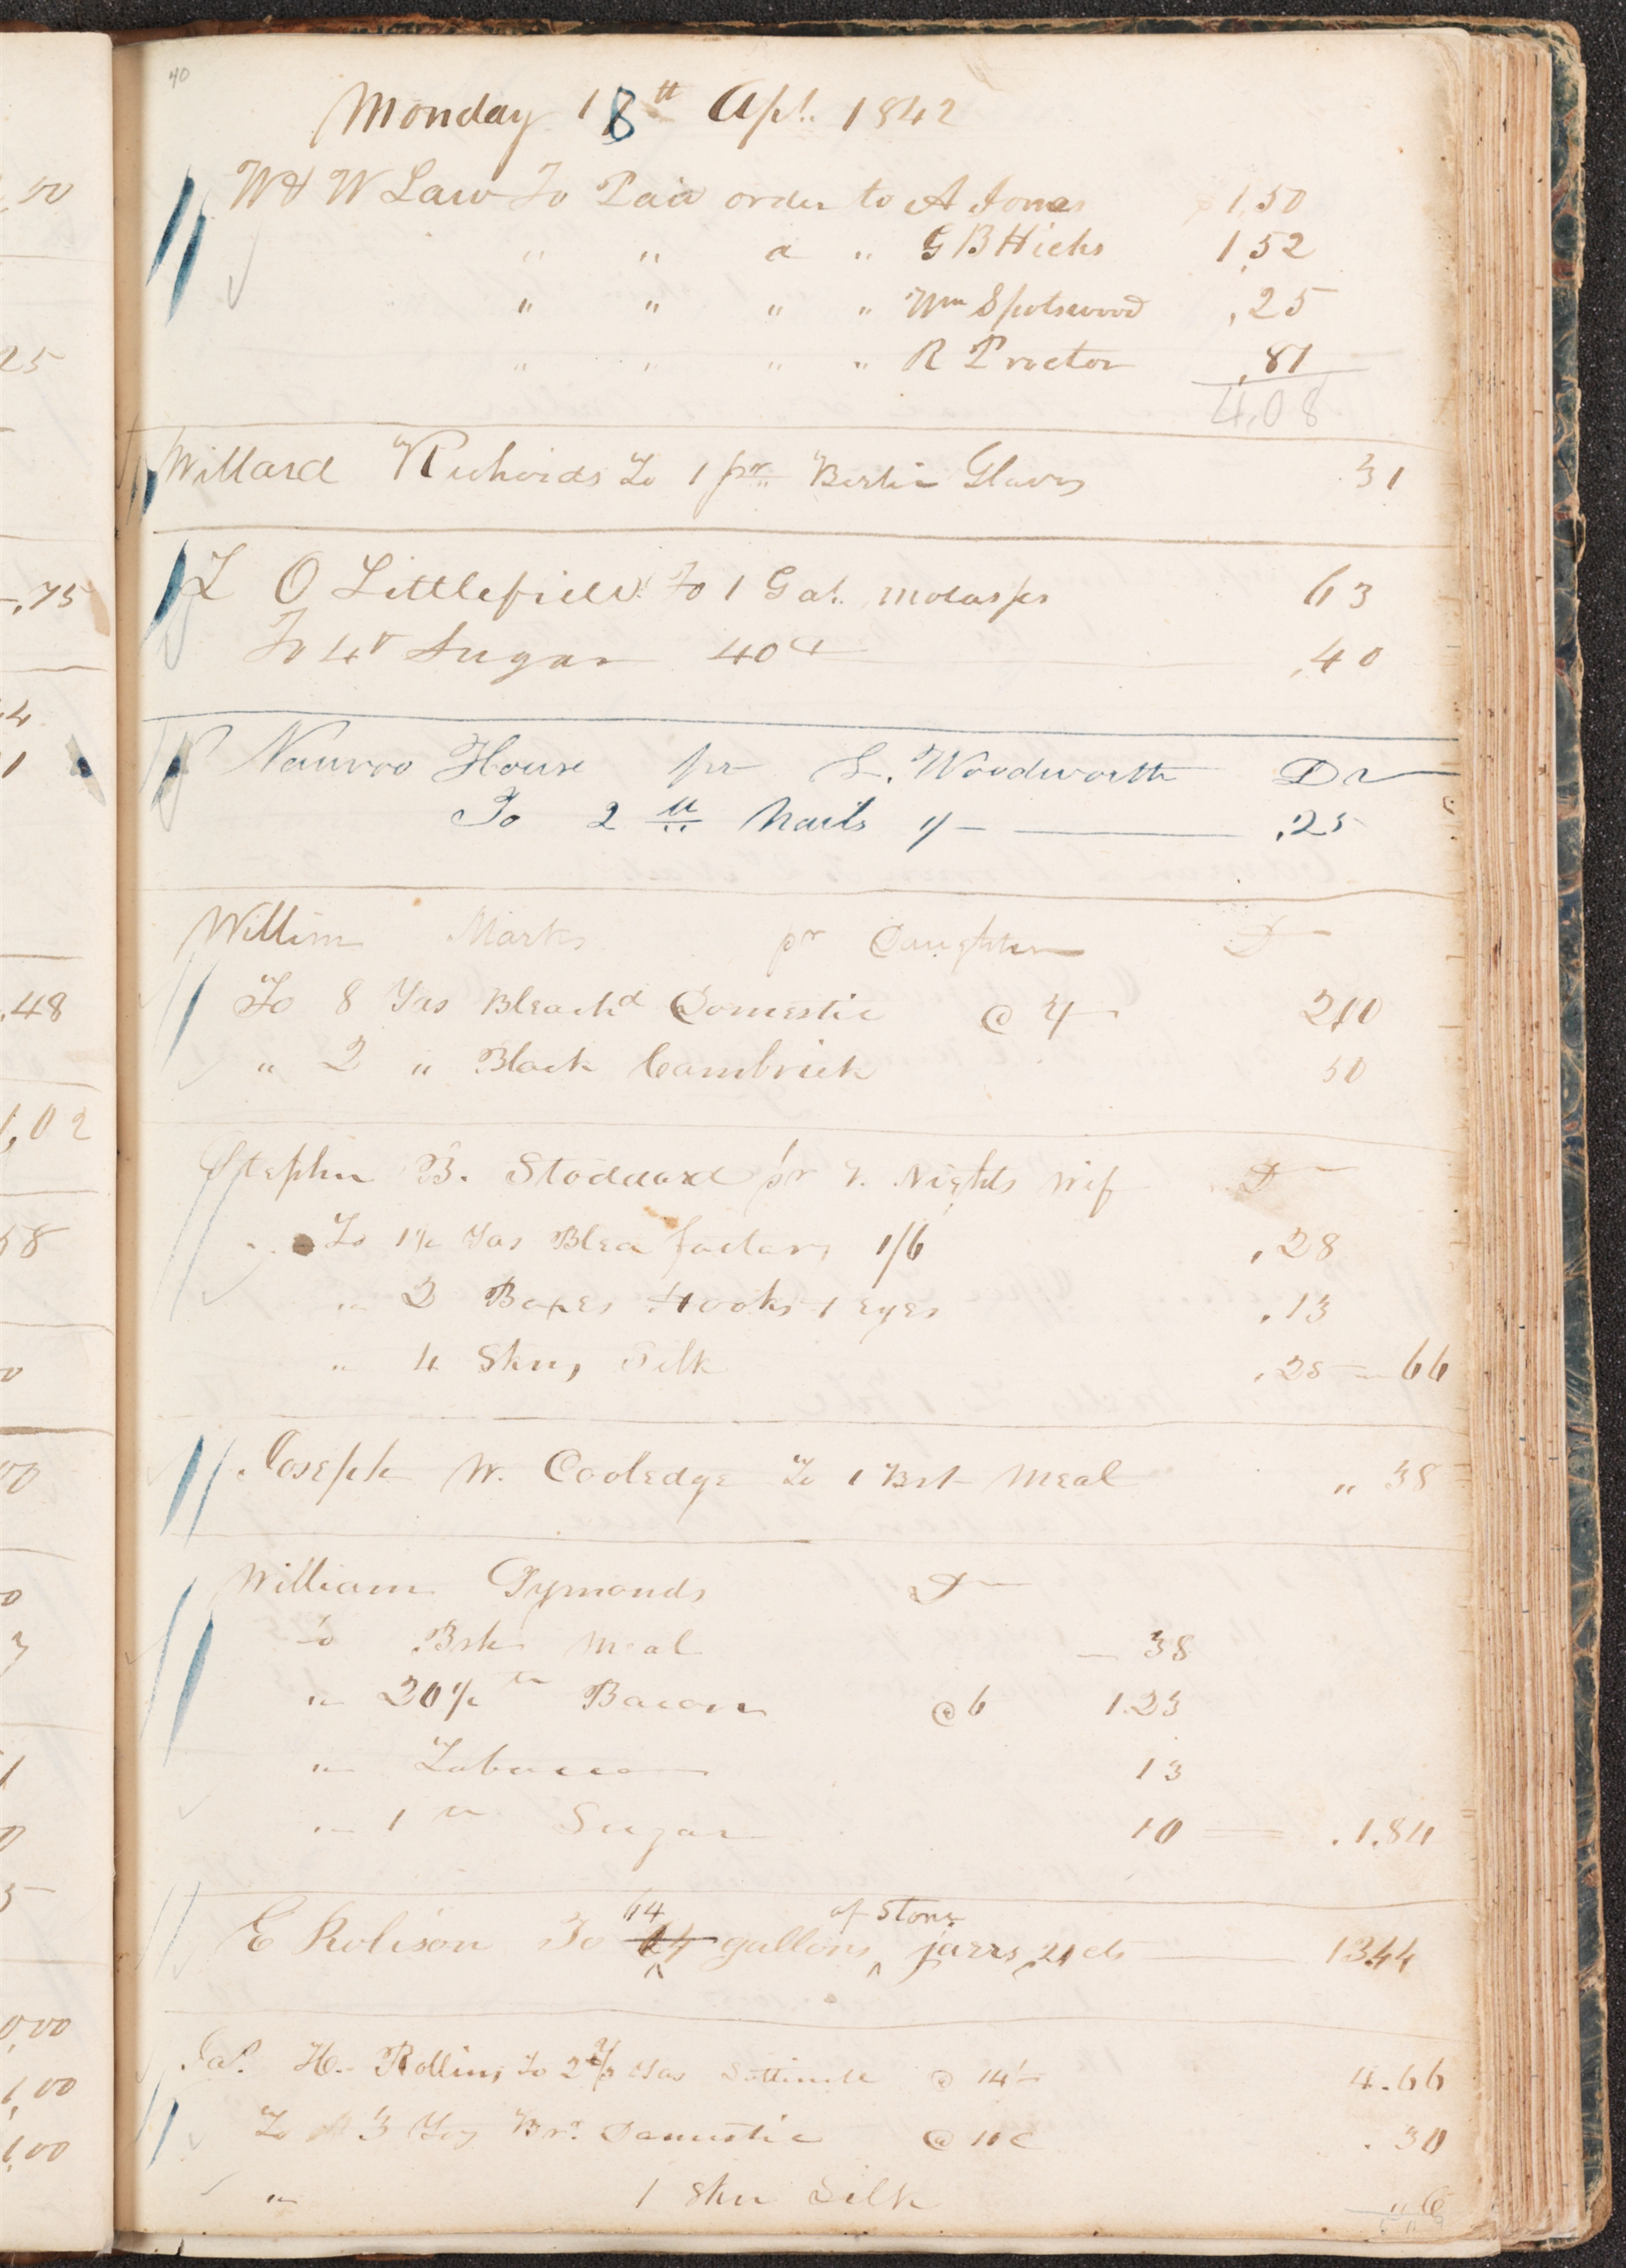 40
Monday 18th Apl. 1842
W & W Law To Paid order to A Jones 1,50
" " " " G B Hicks 1,52
" " " " Wm Spotswood ,25
" " " " R Proctor ,81
4,08
Willard Richards To 1 pr Berlin Gloves 31
L O Littlefield To 1 Gal. molasses 63
To 4 Sugar 40 ,40
Nauvoo House pr L. Woodworth Dr
To 2 lb Nails ,25
Willim Marks pr Daughter Dr
To 8 Yds Bleachd Domestic @ 2,00
" 2 " Black Cambrick 50
Stephn B. Stoddard pr V. Nights wif Dr
To 1½ Yds Blea 1/6 ,28
" 2 Boxes Hooks & eyes ,13
" 4 Skn, Silk ,25 — 66
Joseph W. Cooledge To 1 Bsh Meal " 38
William Symonds Dr
To Bsh Meal — 38
" 20½ lb Bacon @ 6 1.23
" Tobacco 13
" 1 lb Sugar 10 — .1.84
64 of Stone
E Robison To gallons jarrs, 21 cts 13.44
Jas. H. Rollins To 2 Yds @ 14/- 4.66
To 3 Yds Br. Domestic @ 10c .30
" 1 Skn Silk " 6